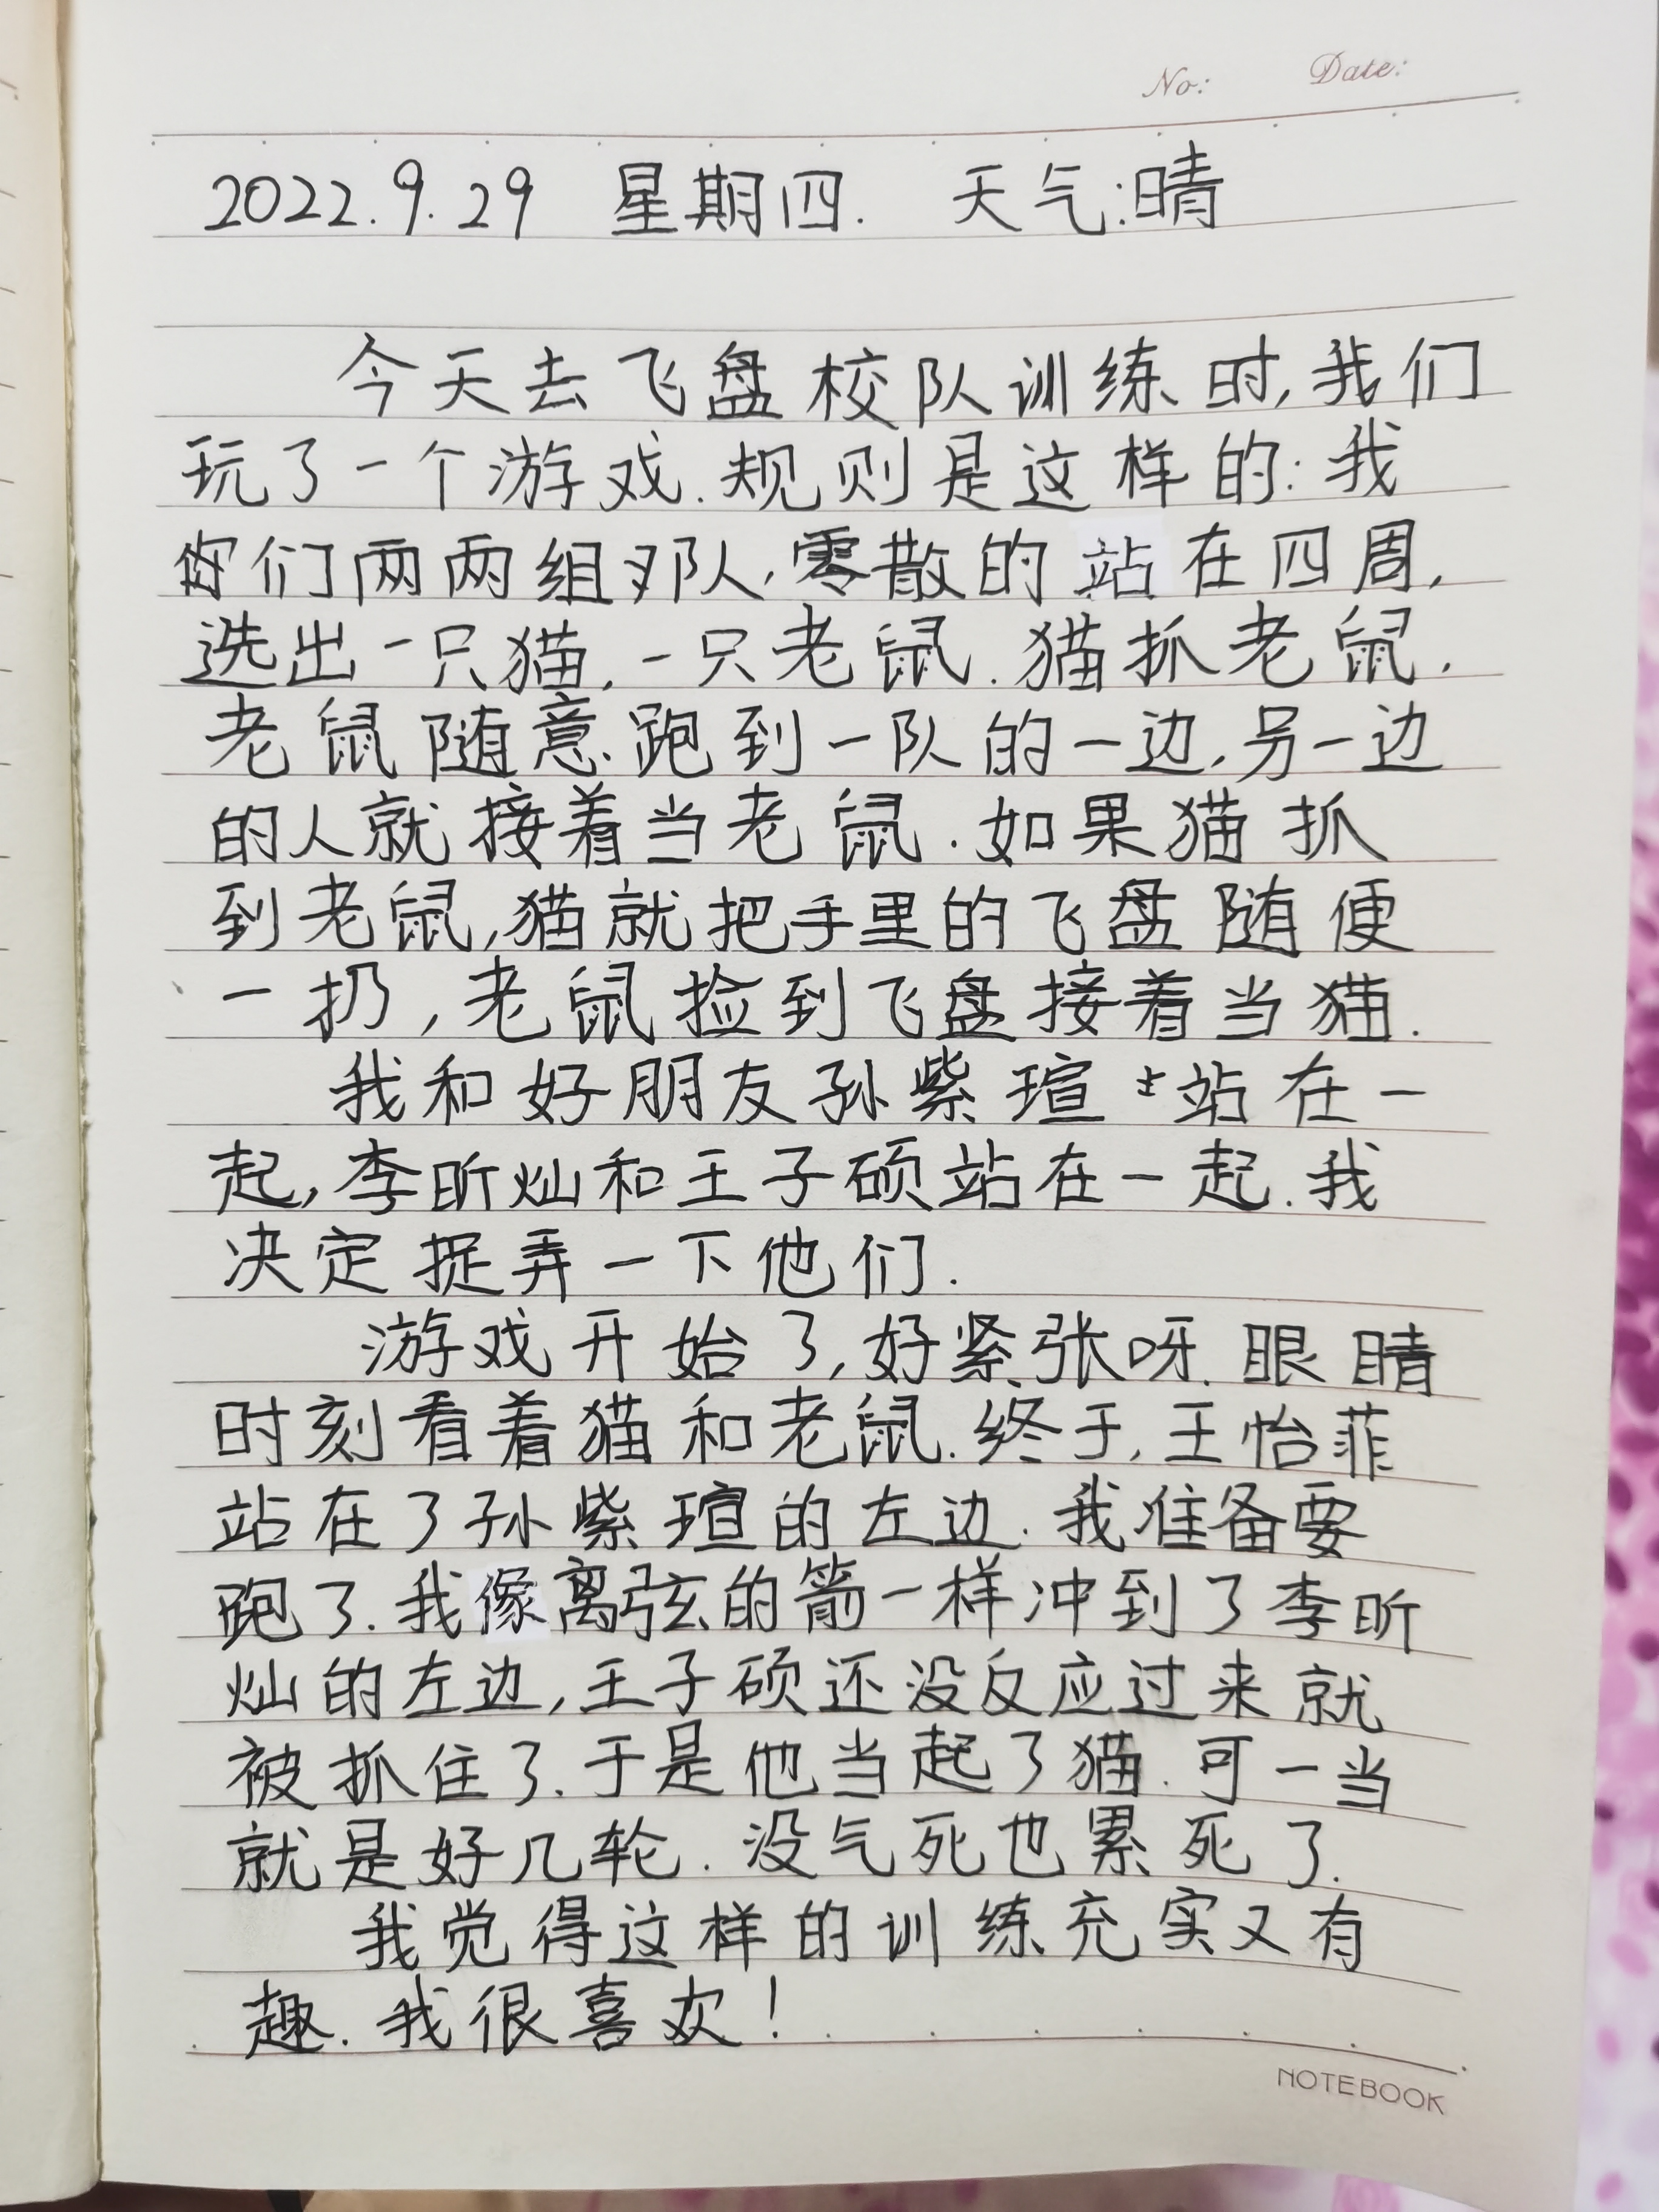 No: Date:
2022.9.29 星期四. 天气:晴
今天去飞盘校队训练时,我们
玩了一个游戏.规则是这样的:我
们两两组成队,零散的站在四周,
选出一只猫,一只老鼠.猫抓老鼠,
老鼠随意跑到一队的一边,另一边
的人就接着当老鼠.如果猫抓
到老鼠,猫就把手里的飞盘随便
一扔,老鼠捡到飞盘接着当猫.
我和好朋友孙紫瑄站在一
起,李昕灿和王子硕站在一起.我
决定捉弄一下他们.
游戏开始了,好紧张呀.眼睛
时刻看着猫和老鼠.终于,王怡菲
站在了孙紫瑄的左边.我准备要
跑了.我像离弦的箭一样冲到了李昕
灿的左边,王子硕还没反应过来就
被抓住了.于是他当起了猫.可一当
就是好几轮.没气死也累死了.
我觉得这样的训练充实又有
趣.我很喜欢!
NOTEBOOK